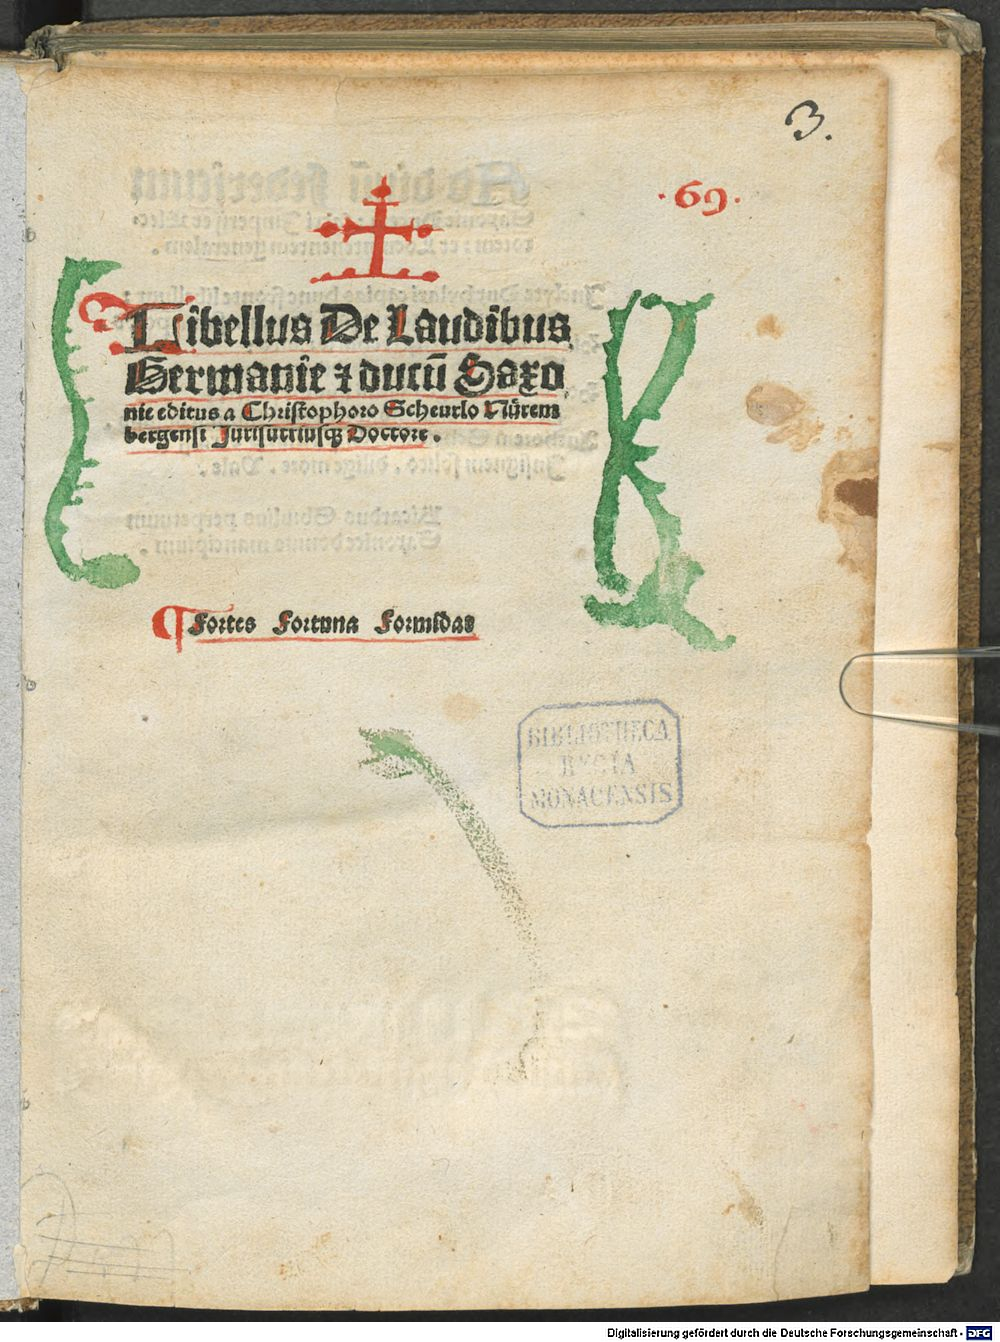 3.
.69.
Libellus De Laudibus
Germanie ⁊ ducū Saxo
nie editus a Christophoro Scheurlo Nürem
bergensi Jurisutriusqȝ Doctore.
¶ Fortes Fortuna Formidat
BIBLIOTHECA
REGIA
MONACENSIS
Digitalisierung gefördert durch die Deutsche Forschungsgemeinschaft - DFG